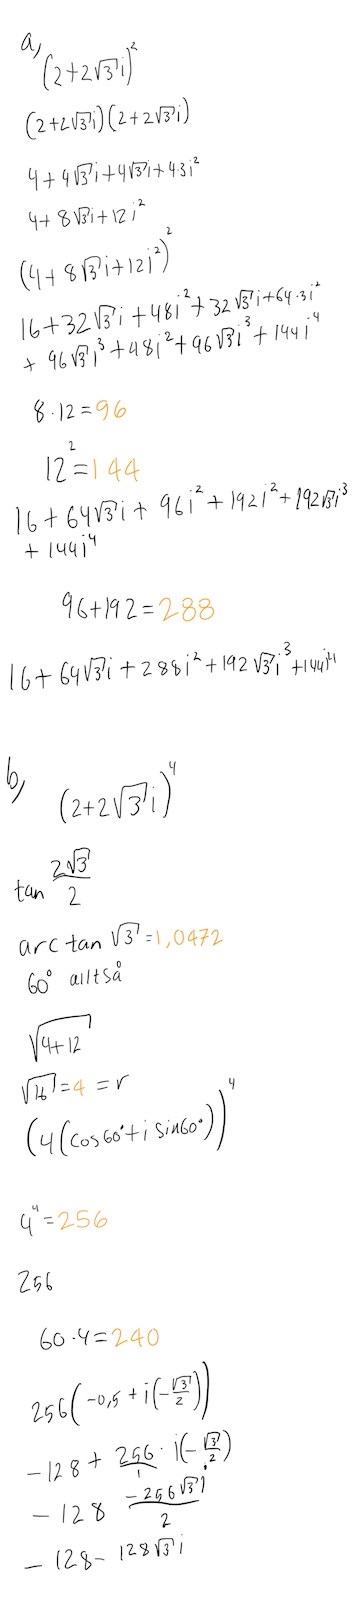 a, (2+2√3 i)²
(2+2√3 i)(2+2√3 i)
4+4√3 i+4√3 i+4·3i²
4+8√3 i+12i²
(4+8√3 i+12i²)²
16+32√3 i+48i²+32√3 i+64·3i²
+96√3 i³+48i²+96√3 i³+144i⁴
8·12=96
12²=144
16+64√3 i+96i²+192i²+192√3 i³
+144i⁴
96+192=288
16+64√3 i+288i²+192√3 i³+144i⁴
b, (2+2√3 i)⁴
tan 2√3/2
arctan √3=1,0472
60° alltså
√4+12
√16=4=r
(4(cos60°+i sin60°))⁴
4⁴=256
256
60·4=240
256(-0,5+i(-√3/2))
-128+256/1·i(-√3/2)
-128 -256√3 i/2
-128-128√3 i